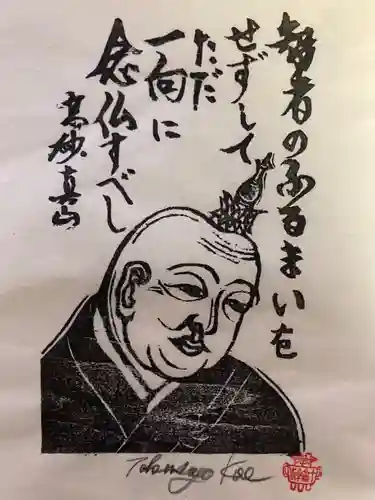 智者のふるまいを
せずして
ただ
一向に
念仏すべし
高砂真山